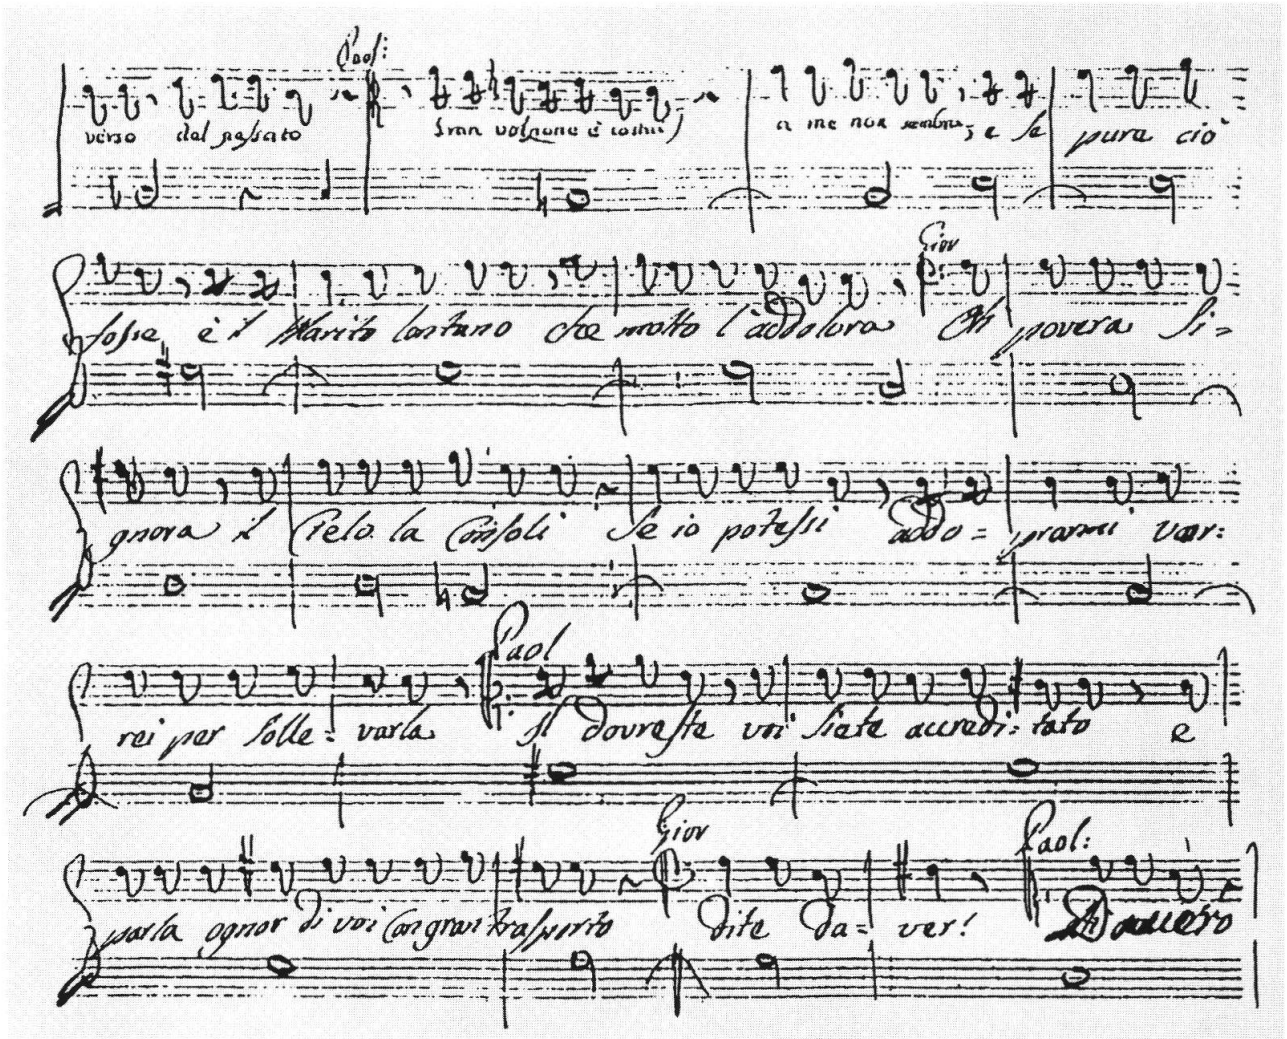 Paol:
verso dal passato Gran volpone è costui, a me non sembra; e se pure ciò
Giov
fosse è il Marito lontano che molto l'addolora Oh povera Si=
gnora il Cielo la Consoli Se io potessi addo= prarmi vor:
Paol
rei per solle= varla Sì dovreste voi siete accredi: tato e
Giov Paol:
parla ognor di voi Con gran trasporto dite da= ver! Di